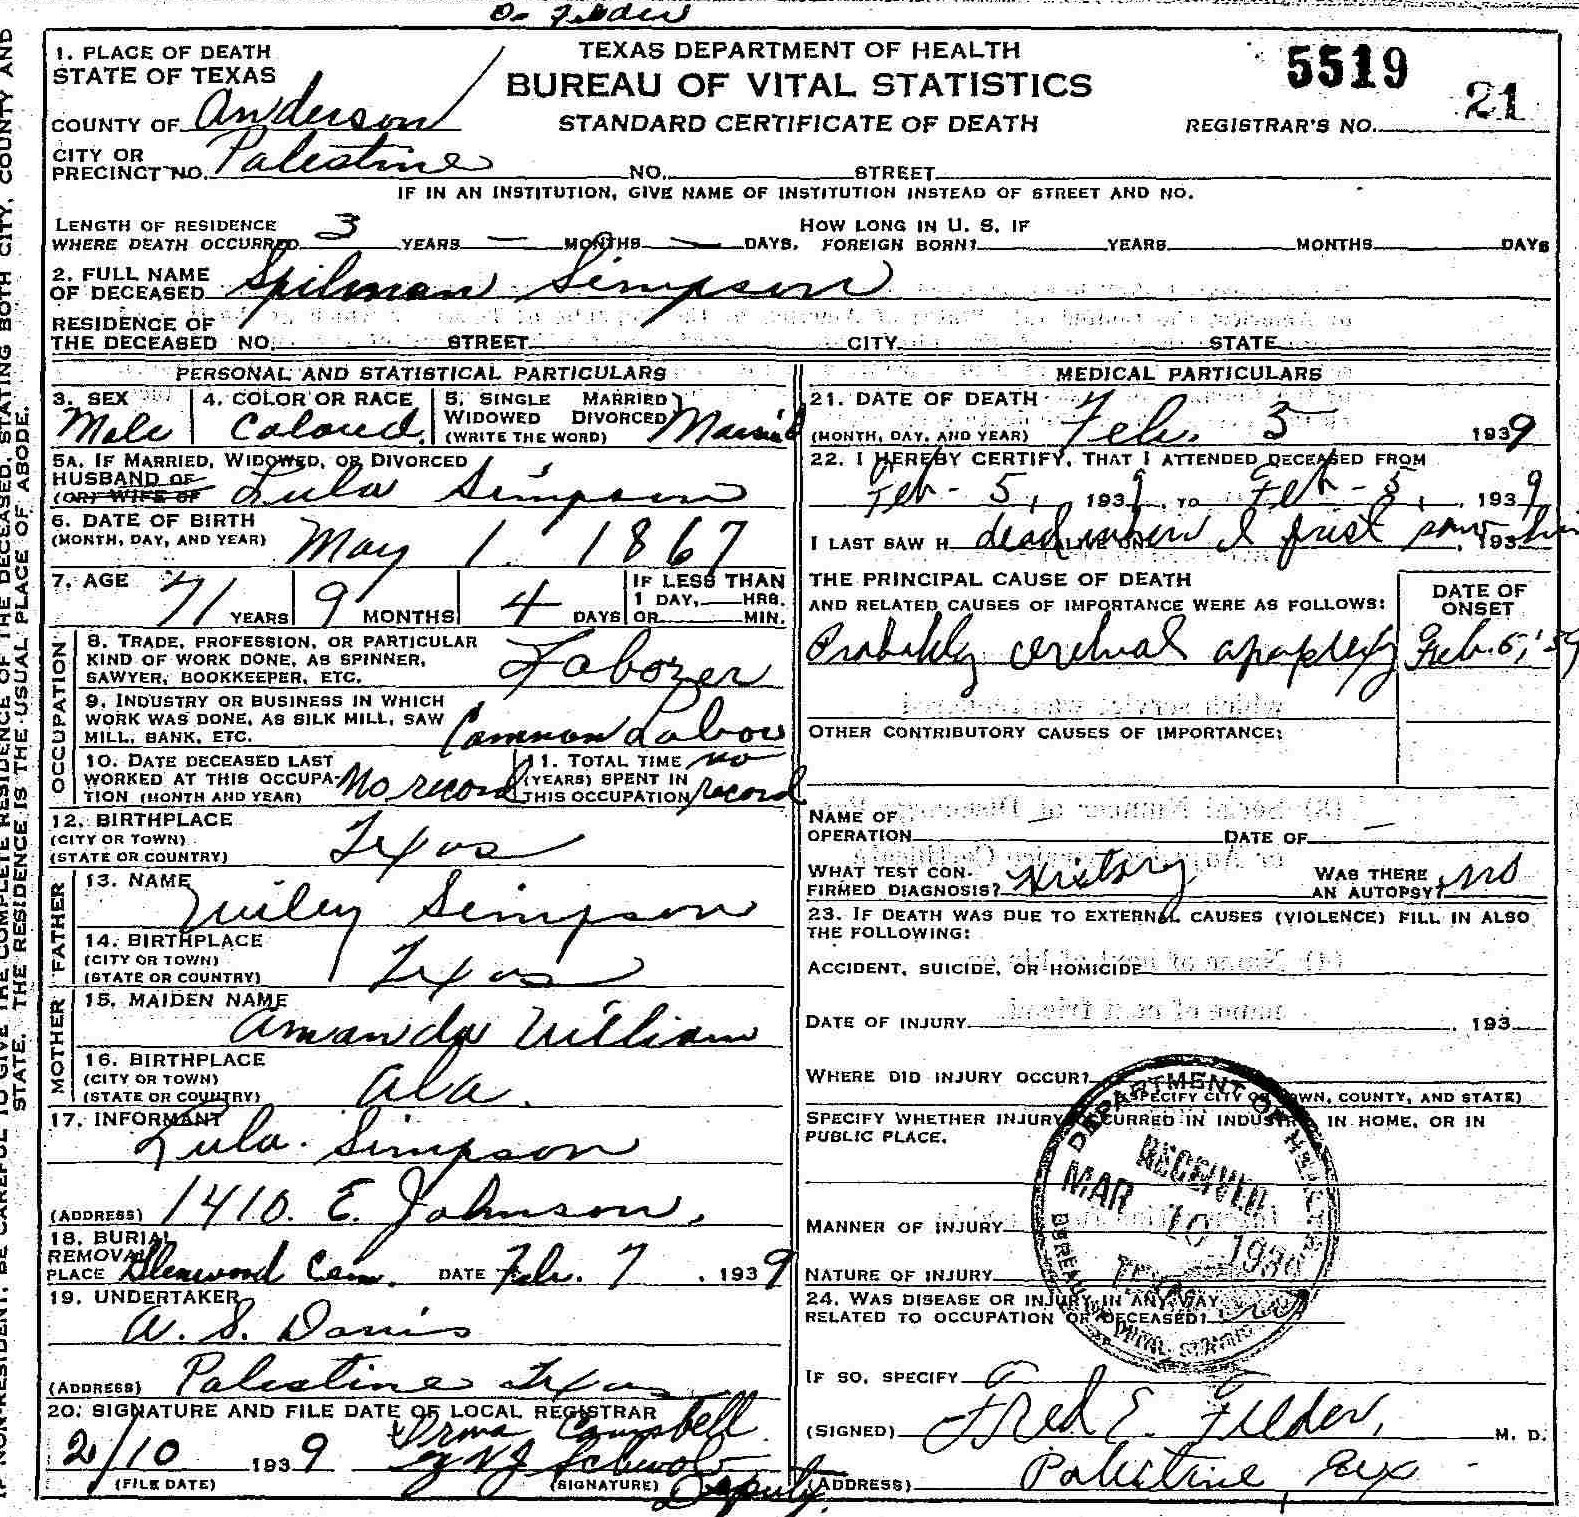 Dr Felder
1. PLACE OF DEATH
STATE OF TEXAS
COUNTY OF Anderson
CITY OR
PRECINCT NO. Palestine NO. STREET
TEXAS DEPARTMENT OF HEALTH
BUREAU OF VITAL STATISTICS
STANDARD CERTIFICATE OF DEATH
5519
REGISTRAR'S NO. 21
IF IN AN INSTITUTION, GIVE NAME OF INSTITUTION INSTEAD OF STREET AND NO.
LENGTH OF RESIDENCE
WHERE DEATH OCCURRED 3 YEARS — MONTHS — DAYS.
HOW LONG IN U. S. IF
FOREIGN BORN? YEARS MONTHS DAYS
2. FULL NAME
OF DECEASED Spilman Simpson
RESIDENCE OF
THE DECEASED NO. STREET CITY STATE
PERSONAL AND STATISTICAL PARTICULARS
3. SEX
Male
4. COLOR OR RACE
Colored
5. SINGLE MARRIED
WIDOWED DIVORCED
(WRITE THE WORD) Married
5A. IF MARRIED, WIDOWED, OR DIVORCED
HUSBAND OF
(OR) WIFE OF Lula Simpson
6. DATE OF BIRTH
(MONTH, DAY, AND YEAR) May 1 1867
7. AGE
71 YEARS 9 MONTHS 4 DAYS
IF LESS THAN
1 DAY, HRS.
OR MIN.
OCCUPATION
8. TRADE, PROFESSION, OR PARTICULAR
KIND OF WORK DONE, AS SPINNER,
SAWYER, BOOKKEEPER, ETC. Laborer
9. INDUSTRY OR BUSINESS IN WHICH
WORK WAS DONE, AS SILK MILL, SAW
MILL, BANK, ETC. Common Labor
10. DATE DECEASED LAST
WORKED AT THIS OCCUPA-
TION (MONTH AND YEAR) No record
11. TOTAL TIME no
(YEARS) SPENT IN
THIS OCCUPATION record
12. BIRTHPLACE
(CITY OR TOWN)
(STATE OR COUNTRY) Texas
FATHER
13. NAME
Wiley Simpson
14. BIRTHPLACE
(CITY OR TOWN)
(STATE OR COUNTRY) Texas
MOTHER
15. MAIDEN NAME
Amanda William
16. BIRTHPLACE
(CITY OR TOWN)
(STATE OR COUNTRY) Ala.
17. INFORMANT
Lula Simpson
(ADDRESS) 1410. E. Johnson,
18. BURIAL
REMOVAL
PLACE Glenwood Cem. DATE Feb. 7, 1939
19. UNDERTAKER
A. S. Davis
(ADDRESS) Palestine Texas
20. SIGNATURE AND FILE DATE OF LOCAL REGISTRAR
Irma Campbell
2/10 1939
(FILE DATE) (SIGNATURE) Deputy
MEDICAL PARTICULARS
21. DATE OF DEATH
(MONTH, DAY, AND YEAR) Feb. 5 1939
22. I HEREBY CERTIFY, THAT I ATTENDED DECEASED FROM
Feb - 5, 1939, TO Feb - 5, 1939
I LAST SAW H dead when I frist saw him ALIVE ON , 193
THE PRINCIPAL CAUSE OF DEATH
AND RELATED CAUSES OF IMPORTANCE WERE AS FOLLOWS:
DATE OF
ONSET
Probably cerebral apoplexy Feb. 5, '39
OTHER CONTRIBUTORY CAUSES OF IMPORTANCE:
NAME OF
OPERATION — DATE OF —
WHAT TEST CON-
FIRMED DIAGNOSIS? History
WAS THERE
AN AUTOPSY? no
23. IF DEATH WAS DUE TO EXTERNAL CAUSES (VIOLENCE) FILL IN ALSO
THE FOLLOWING:
ACCIDENT, SUICIDE, OR HOMICIDE
DATE OF INJURY , 193
WHERE DID INJURY OCCUR?
(SPECIFY CITY OR TOWN, COUNTY, AND STATE)
SPECIFY WHETHER INJURY OCCURRED IN INDUSTRY, IN HOME, OR IN
PUBLIC PLACE.
MANNER OF INJURY
NATURE OF INJURY
24. WAS DISEASE OR INJURY IN ANY WAY
RELATED TO OCCUPATION OF DECEASED? no
IF SO, SPECIFY
(SIGNED) Fred E. Felder, M. D.
(ADDRESS) Palestine, Tex
DEPARTMENT OF HEALTH
RECEIVED
MAR 10 1939
TEXAS
BUREAU OF VITAL STATISTICS
STATE. THE RESIDENCE IS THE USUAL PLACE OF ABODE.